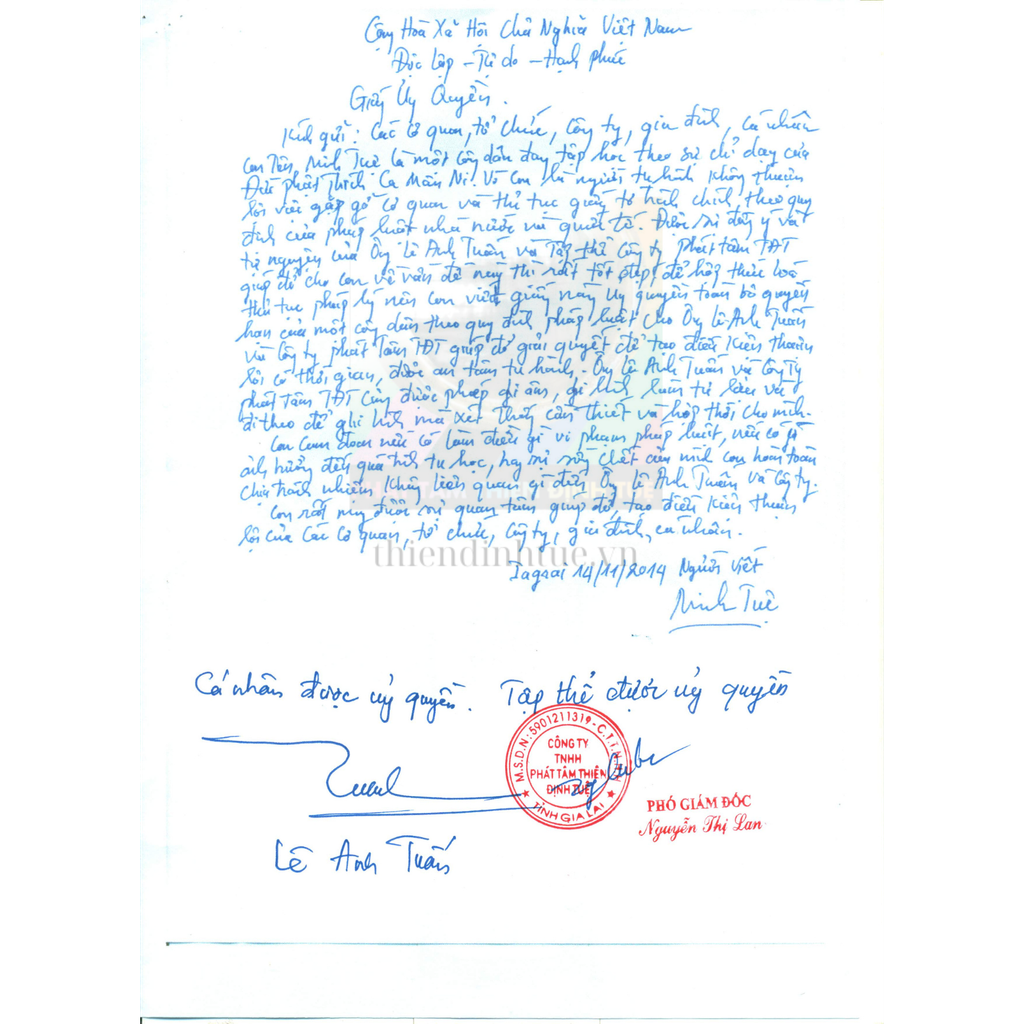 Cộng Hoà Xã Hội Chủ Nghĩa Việt Nam
Độc lập - Tự do - Hạnh phúc
Giấy Ủy Quyền.
Kính gửi: Các cơ quan, tổ chức, công ty, gia đình, cá nhân
Con Tên, Minh Tuệ là một công dân đang tập học theo sự chỉ dạy của
Đức phật Thích Ca Mâu Ni. Vì con là người tu hành không thuận
lợi việc gặp gỡ cơ quan và thủ tục giấy tờ hành chính, theo quy
định của pháp luật nhà nước và quốc tế. Được sự đồng ý và
tự nguyện của Ông Lê Anh Tuấn và Tập thể Công ty phát tâm TĐT
giúp đỡ cho con về vấn đề này thì rất tốt đẹp, để hợp thức hoá
thủ tục pháp lý nên con viết giấy này uỷ quyền toàn bộ quyền
hạn của một công dân theo quy định pháp luật cho Ông Lê Anh Tuấn
và Công ty phát Tâm TĐT giúp đỡ giải quyết để tạo điều kiện thuận
lợi có thời gian, được an tâm tu hành. Ông Lê Anh Tuấn và Công Ty
phát Tâm TĐT cũng được phép ghi âm, ghi hình, luôn từ lâu và
đi theo để ghi hình mà xét thấy cần thiết và hợp thời cho mình.
Con cam đoan nếu có làm điều gì vi phạm pháp luật, nếu có gì
ảnh hưởng đến quá trình tu học, hay sự sống chết của mình con hoàn toàn
chịu trách nhiệm không liên quan gì đến Ông Lê Anh Tuấn và Công ty.
Con rất mong được sự quan tâm giúp đỡ, tạo điều kiện thuận
lợi của các cơ quan, tổ chức, công ty, gia đình, cá nhân.
thiendinhtue.vn
Iagrai 14/11/2014 Người viết
Minh Tuệ
Cá nhân được uỷ quyền. Tập thể được uỷ quyền
M.S.D.N: 5901211319 - C.T.T.N.H.H
CÔNG TY
TNHH
PHÁT TÂM THIỀN
ĐỊNH TUỆ
TỈNH GIA LAI
PHÓ GIÁM ĐỐC
Nguyễn Thị Lan
Lê Anh Tuấn